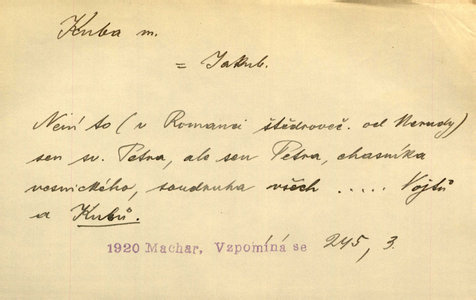 Kuba m.
= Jakub.
Není to (v Romanci štědroveč. od Nerudy)
sen sv. Petra, ale sen Petra, chasníka
vesnického, soudruha všech ..... Vojtů
a Kubů.
1920 Machar, Vzpomíná se 245, 3.